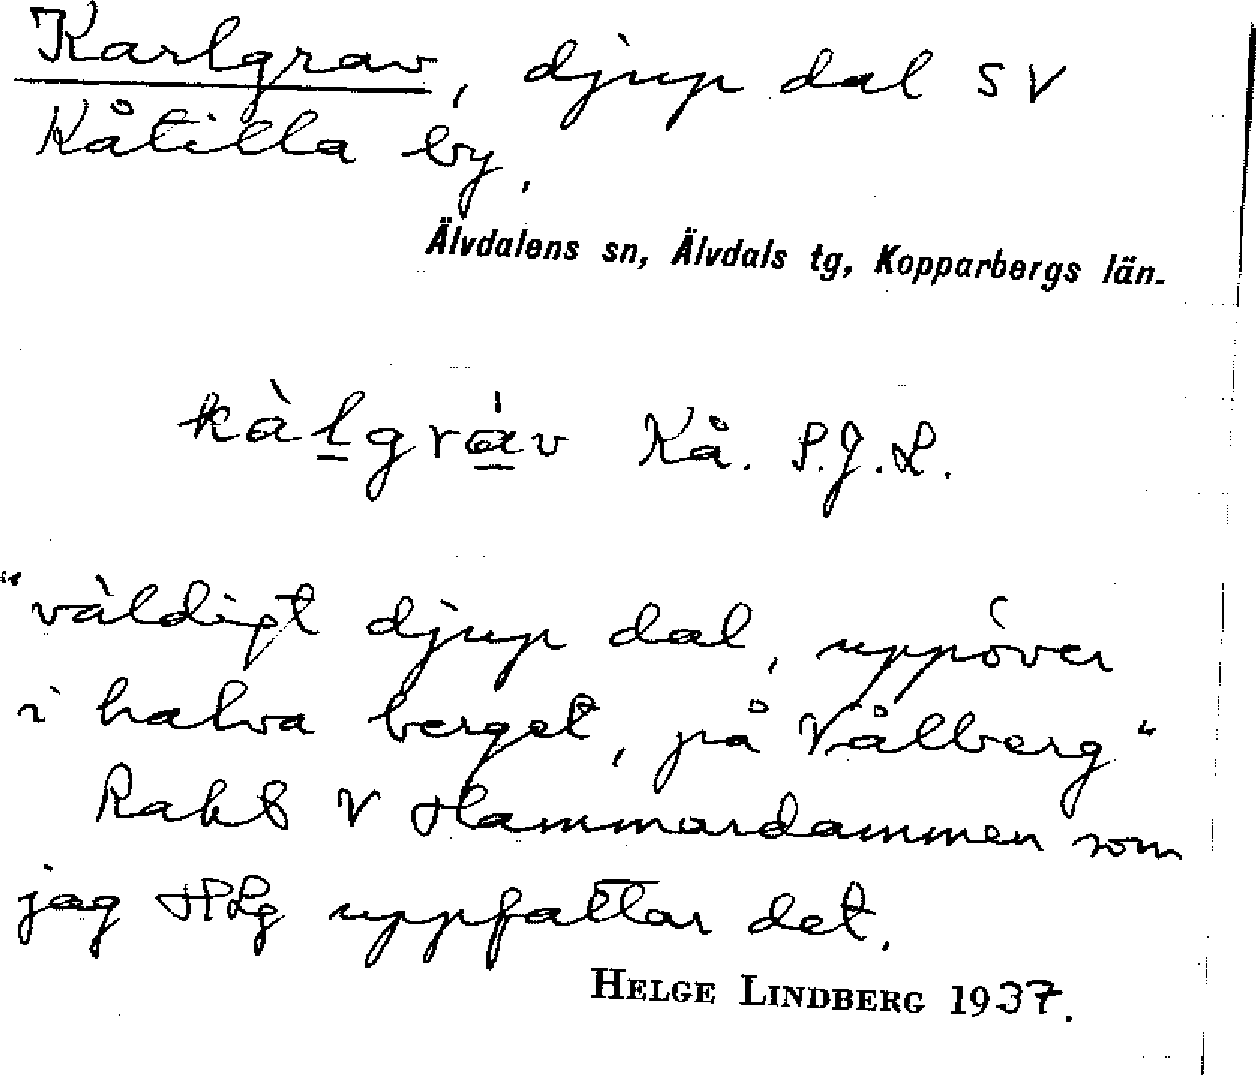 Karlgrav, djup dal SV
Kåtilla by.
Älvdalens sn, Älvdals tg, Kopparbergs län.
kàlgráv Kå. P.J.L.
"väldigt djup dal, uppöver
i halva berget, på Vålberg"
Rakt V Hammardammen som
jag HLg uppfattar det.
HELGE LINDBERG 1937.